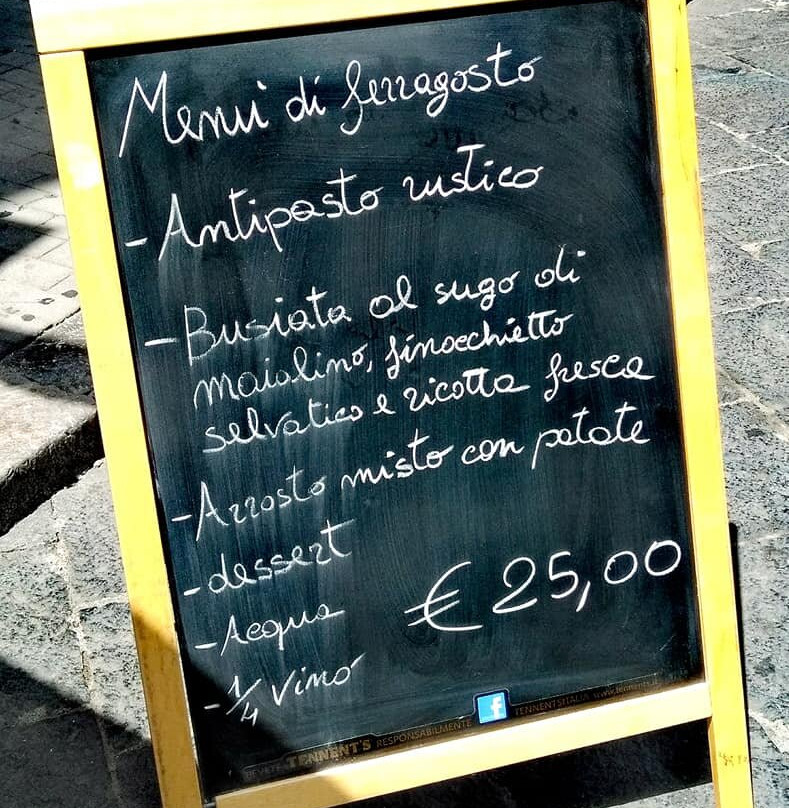 Menù di ferragosto
- Antipasto rustico
- Busiata al sugo di
maialino, finocchietto
selvatico e ricotta fresca
- Arrosto misto con patate
- dessert
- Acqua
€ 25,00
- 1/4 Vino
BEVETE TENNENT'S RESPONSABILMENTE f TENNENTSITALIA